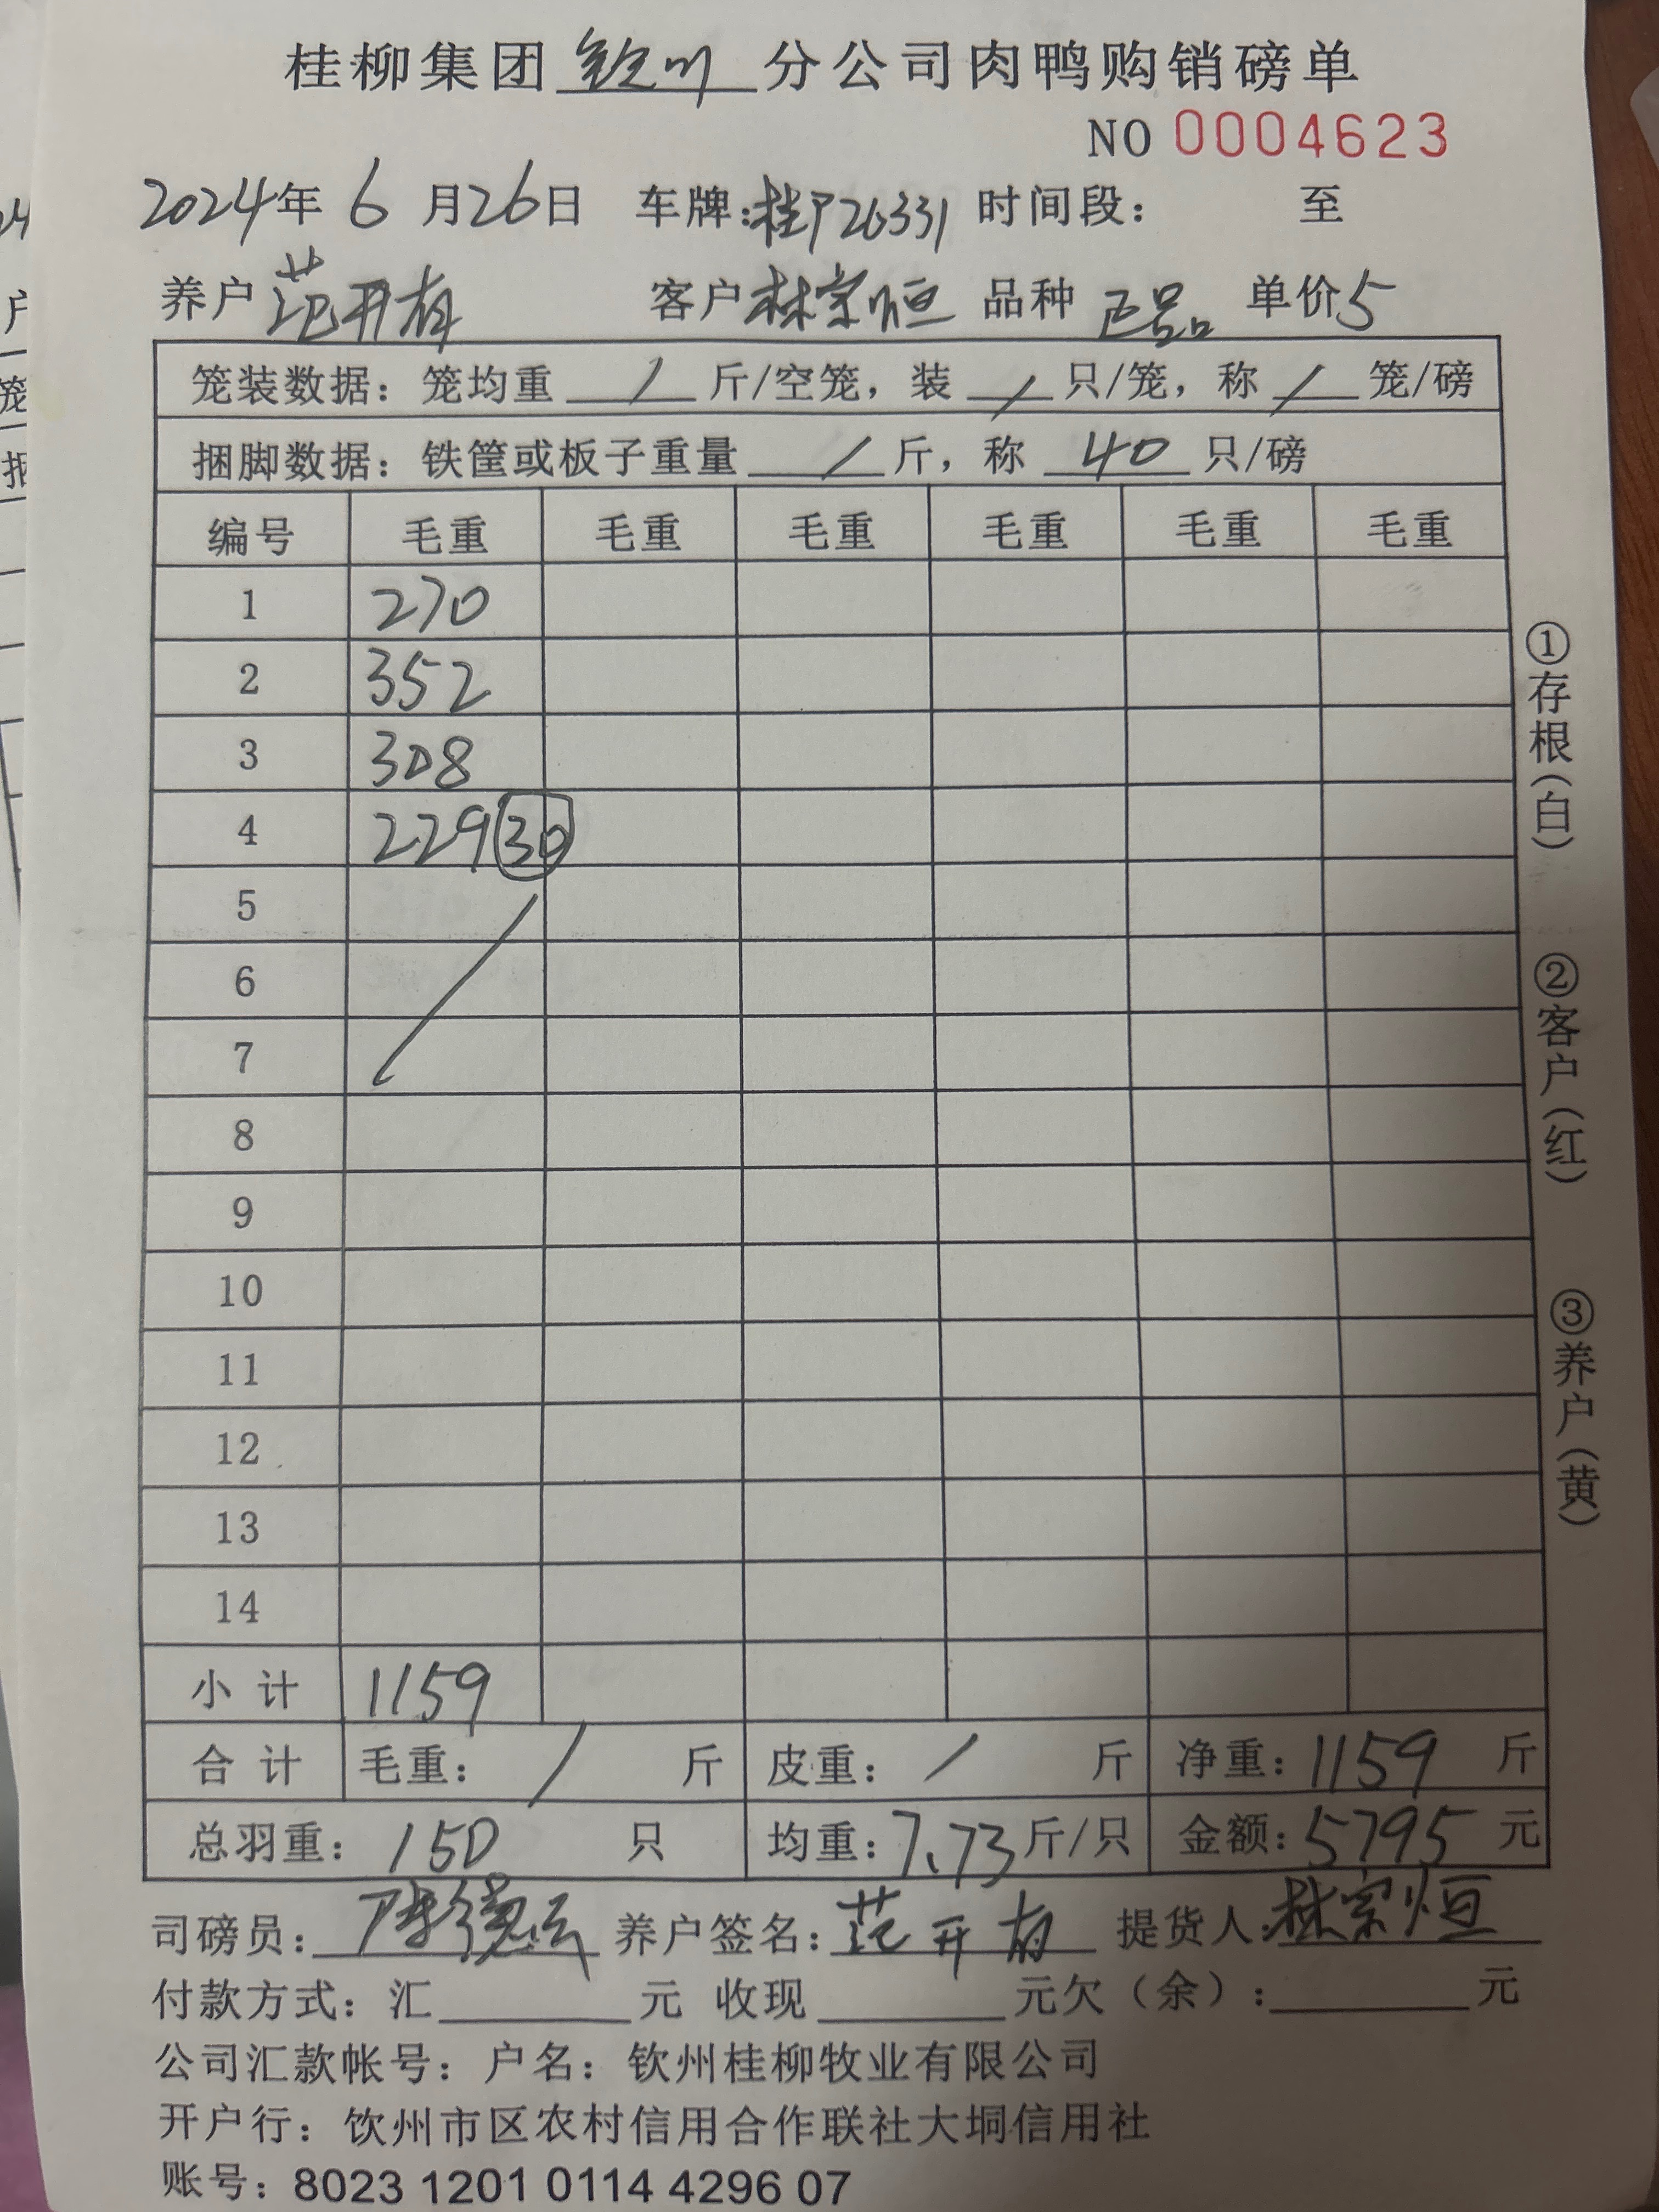 桂柳集团 钦州 分公司肉鸭购销磅单
NO 0004623
2024年 6 月26日 车牌:桂P26331 时间段: 至
养户 范开有 客户 林宗恒 品种 正品 单价5
笼装数据:笼均重 / 斤/空笼,装 / 只/笼,称 / 笼/磅
捆脚数据:铁筐或板子重量 / 斤,称 40 只/磅
编号 毛重 毛重 毛重 毛重 毛重 毛重
1 270
2 352
3 308
4 229 30
5
6
7
8
9
10
11
12
13
14
小计 1159
合计 毛重: / 斤 皮重: / 斤 净重:1159 斤
总羽重:150 只 均重:7.73斤/只 金额:5795 元
司磅员: 陈德云 养户签名:范开有 提货人:林宗恒
付款方式:汇 元 收现 元欠(余): 元
公司汇款帐号:户名:钦州桂柳牧业有限公司
开户行:饮州市区农村信用合作联社大垌信用社
账号:8023 1201 0114 4296 07
①存根(白)
②客户(红)
③养户(黄)